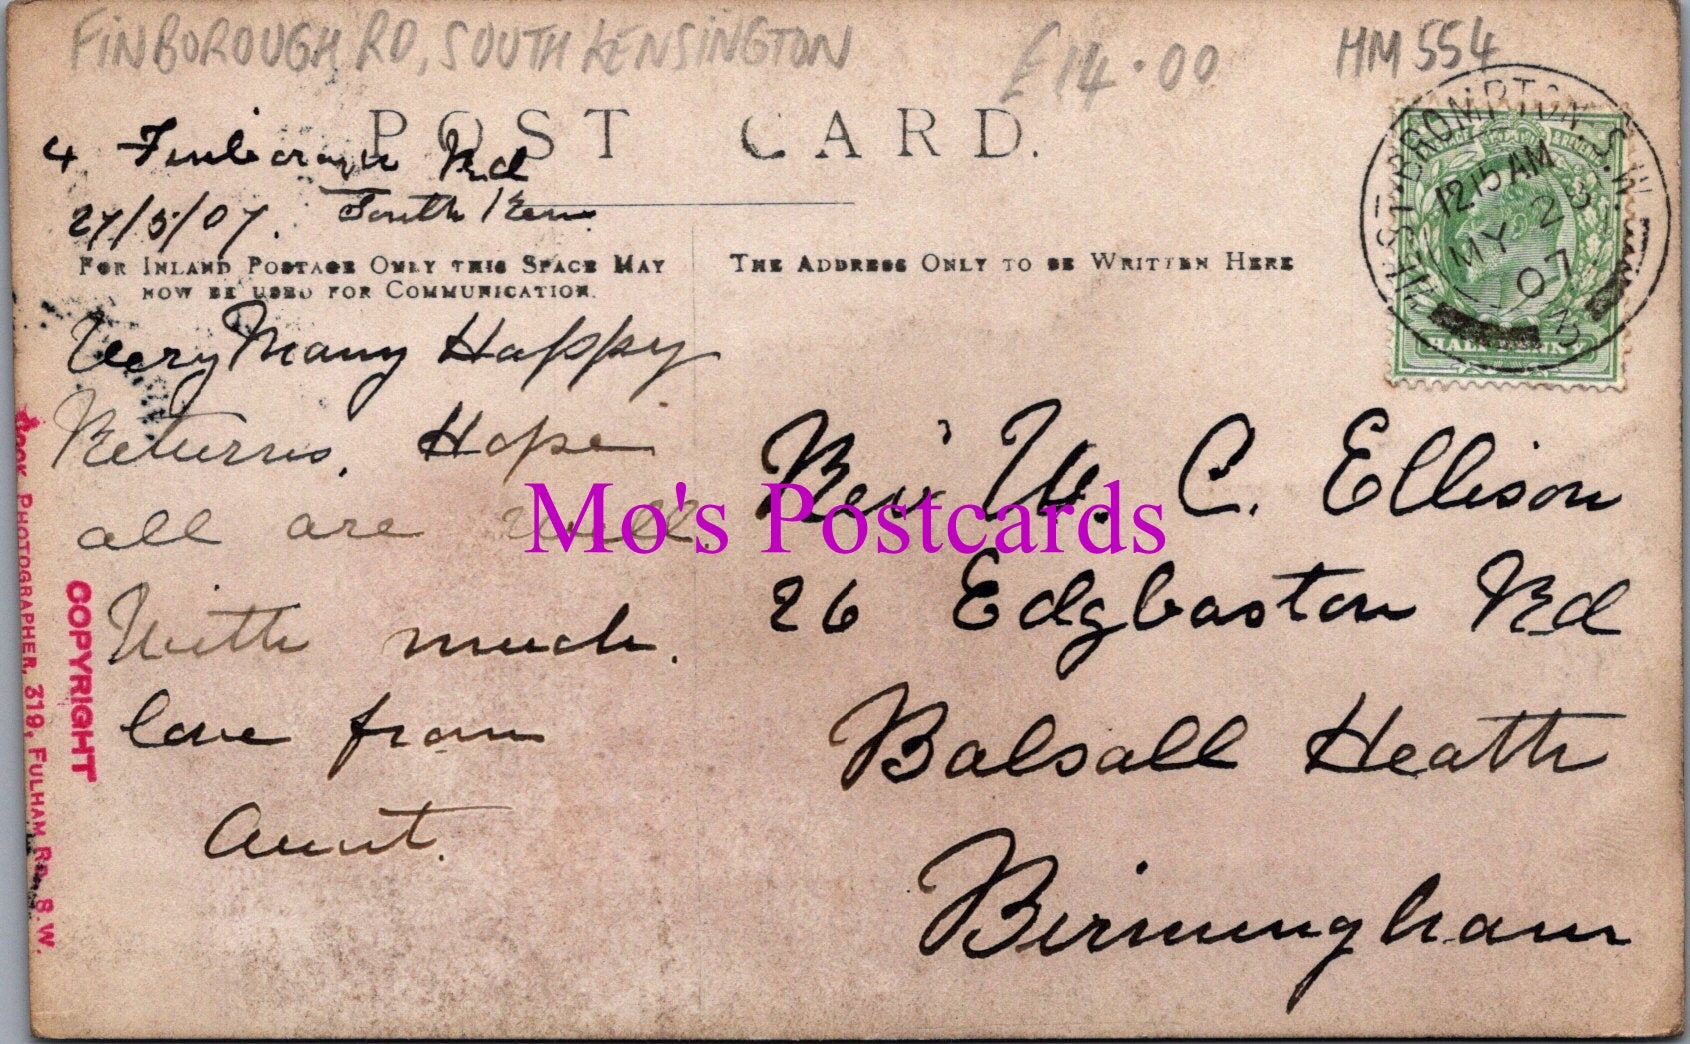 FINBOROUGH RD, SOUTH KENSINGTON £14.00 HM 554
POST CARD.
4 Finborough Rd
27/5/07. South Ken
FOR INLAND POSTAGE ONLY THIS SPACE MAY
NOW BE USED FOR COMMUNICATION.
THE ADDRESS ONLY TO BE WRITTEN HERE
WEST BROMPTON. S.W.
12.15 AM
MY 28
07
HALFPENNY
Very Many Happy
Returns. Hope
all are well.
With much
love from
Aunt.
Rev W. C. Ellison
26 Edgbaston Rd
Balsall Heath
Birmingham
Mo's Postcards
COPYRIGHT
PHOTOGRAPHER, 319, FULHAM RD. S.W.